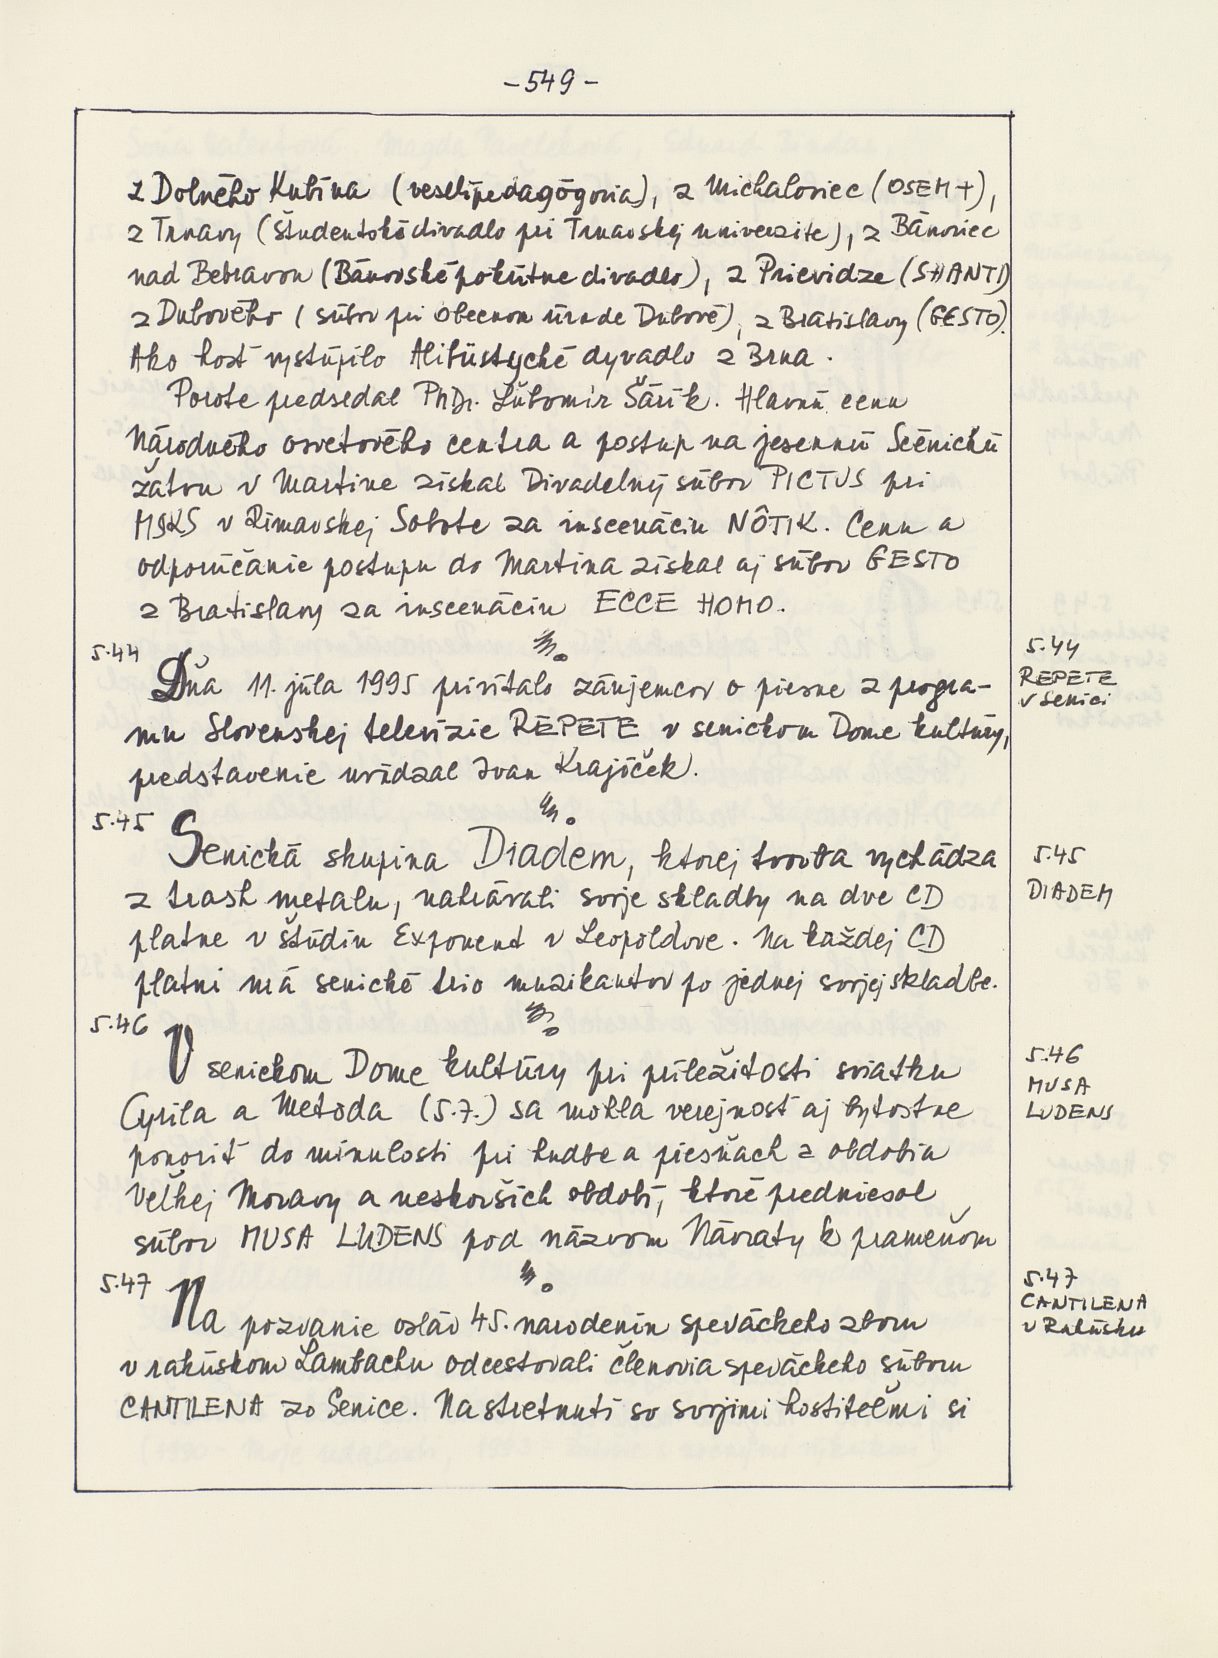 -549-
z Dolného Kubína (veselípedagógovia), z Michaloviec (OSEM+),
z Trnavy (Študentské divadlo pri Trnavskej univerzite), z Bánoviec
nad Bebravou (Bánovské pokútne divadlo), z Prievidze (SHANTI)
z Dubového (súbor pri Obecnom úrade Dubové), z Bratislavy (GESTO).
Ako hosť vystúpilo Alibistyché dyvadlo z Brna.
Porote predsedal PhDr. Ľubomír Šárik. Hlavnú cenu
Národného osvetového centra a postup na jesennú Scénickú
žatvu v Martine získal Divadelný súbor PICTUS pri
MsKS v Rimavskej Sobote za inscenáciu NÔTIK. Cenu a
odporúčanie postupu do Martina získal aj súbor GESTO
z Bratislavy za inscenáciu ECCE HOMO.
5.44
Dňa 11. júla 1995 privítalo záujemcov o piesne z progra-
mu Slovenskej televízie REPETE v senickom Dome kultúry,
predstavenie uvádzal Ivan Krajíček.
5.44
REPETE
v Senici
5.45
Senická skupina Diadem, ktorej tvorba vychádza
z trash metalu, nahrávali svoje skladby na dve CD
platne v štúdiu Exponent v Leopoldove. Na každej CD
platni má senické trio muzikantov po jednej svojej skladbe.
5.45
DIADEM
5.46
V senickom Dome kultúry pri príležitosti sviatku
Cyrila a Metoda (5.7.) sa mohla verejnosť aj bytostne
ponoriť do minulosti pri hudbe a piesňach z obdobia
Veľkej Moravy a neskorších období, ktoré predniesol
súbor MUSA LUDENS pod názvom Návraty k prameňom
5.46
MUSA
LUDENS
5.47
Na pozvanie osláv 45. narodenín speváckeho zboru
v rakúskom Lambachu odcestovali členovia speváckeho súboru
CANTILENA zo Senice. Na stretnutí so svojimi hostiteľmi si
5.47
CANTILENA
v Rakúsku